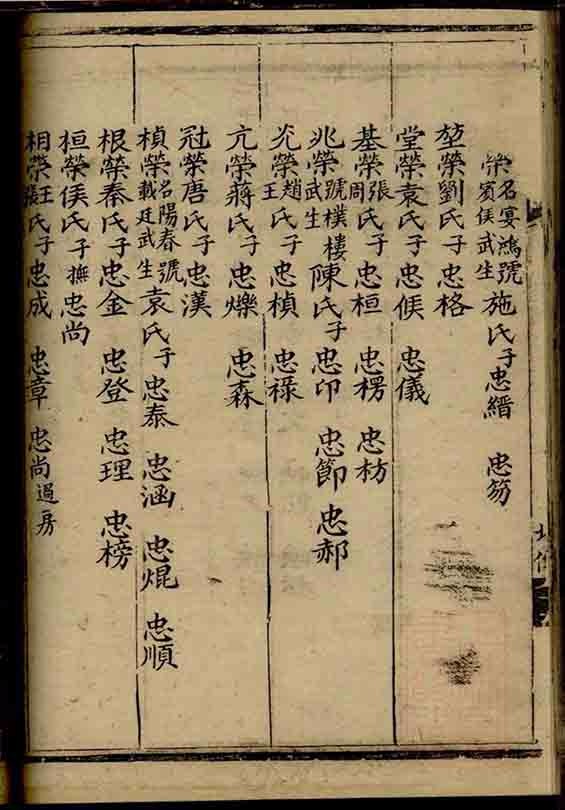 榮名宴鴻號賓侯武生施氏子忠縉 忠笏
堃榮劉氏子忠格
堂榮袁氏子忠俟 忠儀
基榮張周氏子忠桓 忠楞 忠枋
兆榮武生號樸樓陳氏子忠印 忠節 忠郝
光榮趙王氏子忠楨 忠祿
亢榮蔣氏子忠爍 忠森
冠榮唐氏子忠漢
楨榮名陽春號載廷武生袁氏子忠泰 忠涵 忠焜 忠順
根榮秦氏子忠金 忠登 忠理 忠榜
桓榮侯氏子撫忠尚
相榮王張氏子忠成 忠章 忠尚過房